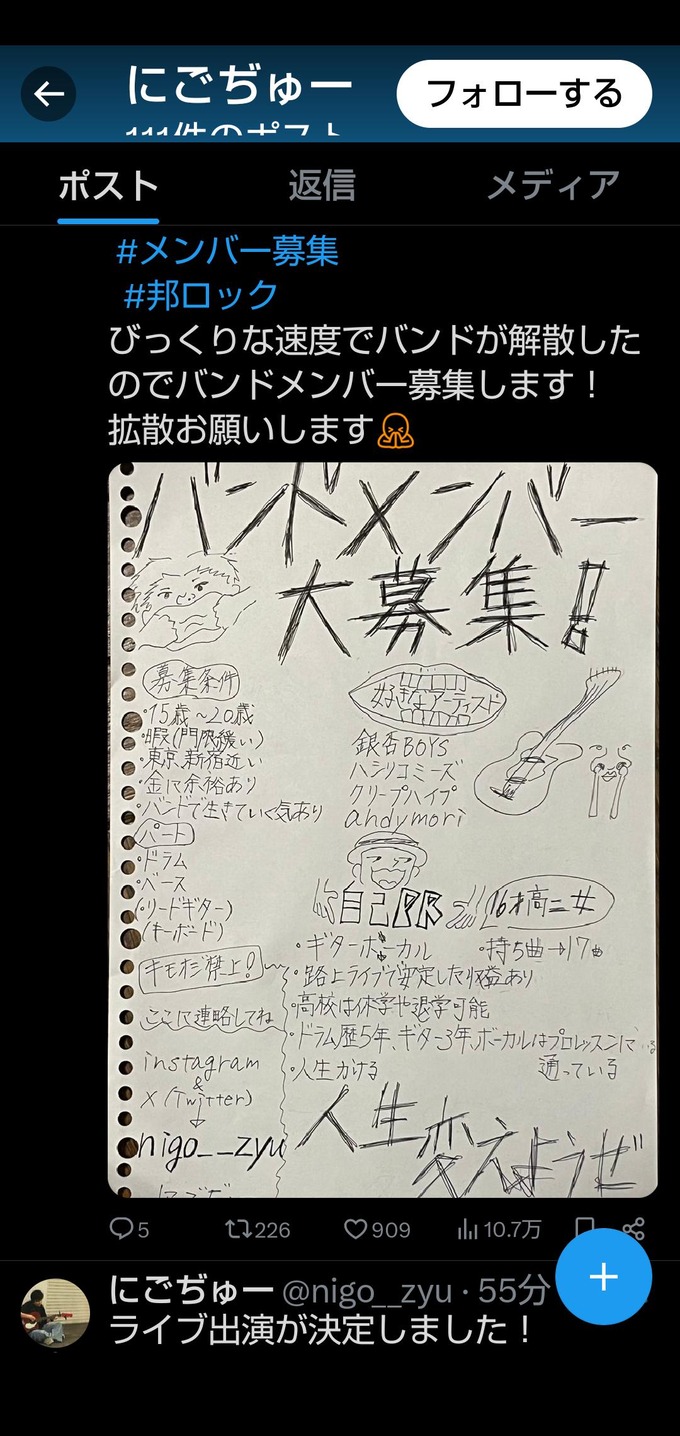 にごぢゅー
フォローする
111件のポスト
ポスト
返信
メディア
#メンバー募集
#邦ロック
びっくりな速度でバンドが解散した
のでバンドメンバー募集します！
拡散お願いします
バンドメンバー
大募集!!
募集条件
・15歳〜20歳
・暇(門限緩い)
・東京新宿近い
・金に余裕あり
・バンドで生きていく気あり
パート
・ドラム
・ベース
(・リードギター)
(キーボード)
キモオジ禁止!
ここに連絡してね
instagram
&
X (Twitter)
↓
nigo__zyu
にごぢ
好きなアーティスト
銀杏BOYS
ハシリコミーズ
クリープハイプ
andymori
自己PR
16才高二女
・ギターボーカル
・持ち曲→17曲
・路上ライブで安定した収益あり
・高校は休学や退学可能
・ドラム歴5年、ギター3年、ボーカルはプロレッスンに
通っている
・人生かける
人生変えようぜ
5
226
909
10.7万
にごぢゅー @nigo__zyu · 55分
ライブ出演が決定しました！